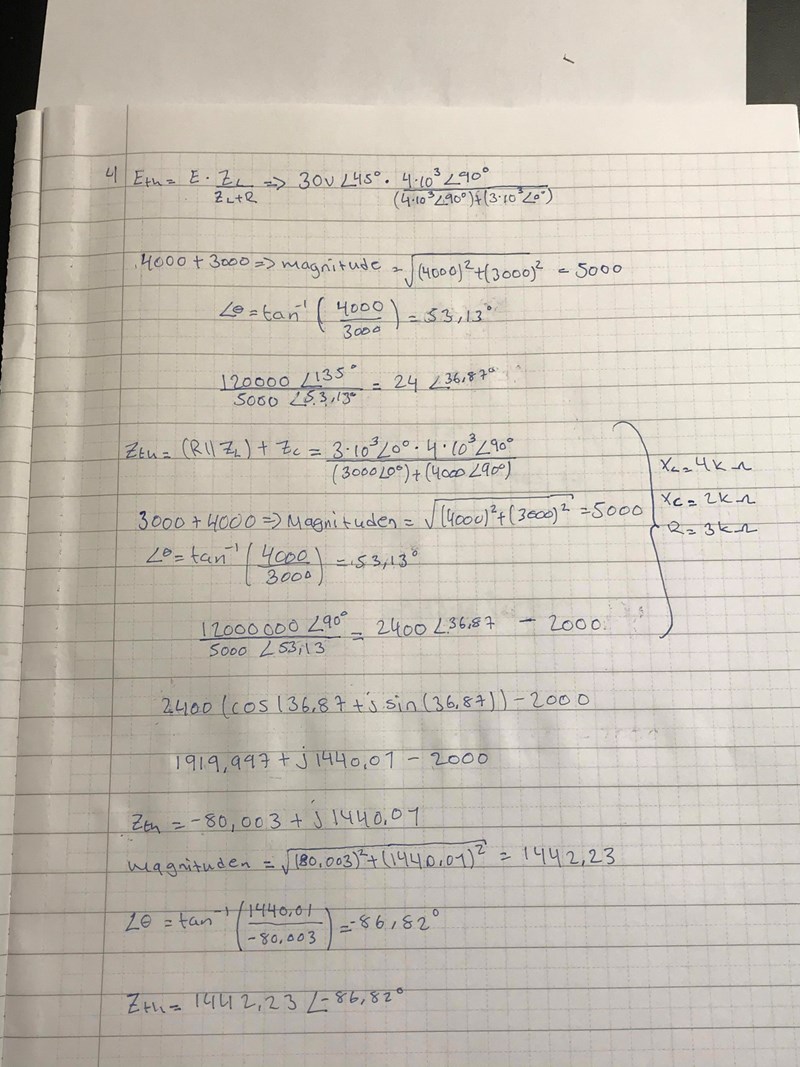 4) E_th = E · Z_L / (Z_L + R) => 30V ∠45° · 4·10³ ∠90° / ((4·10³∠90°)+(3·10³∠0°))
4000 + 3000 => magnitude = √((4000)²+(3000)²) = 5000
∠θ = tan⁻¹ (4000 / 3000) = 53,13°
120000 ∠135° / 5000 ∠53,13° = 24 ∠36,87°
Z_th = (R || Z_L) + Z_C = 3·10³∠0° · 4·10³∠90° / ((3000∠0°)+(4000∠90°))
X_L = 4k Ω
X_C = 2k Ω
R = 3k Ω
3000 + 4000 => Magnituden = √((4000)²+(3000)²) = 5000
∠θ = tan⁻¹ (4000 / 3000) = 53,13°
12000000 ∠90° / 5000 ∠53,13 = 2400 ∠36,87 - 2000
2400 (cos (36,87 + j sin (36,87)) - 2000
1919,997 + j1440,01 - 2000
Z_th = -80,003 + j1440,01
Magnituden = √((80,003)²+(1440,01)²) = 1442,23
∠θ = tan⁻¹ (1440,01 / -80,003) = -86,82°
Z_th = 1442,23 ∠-86,82°